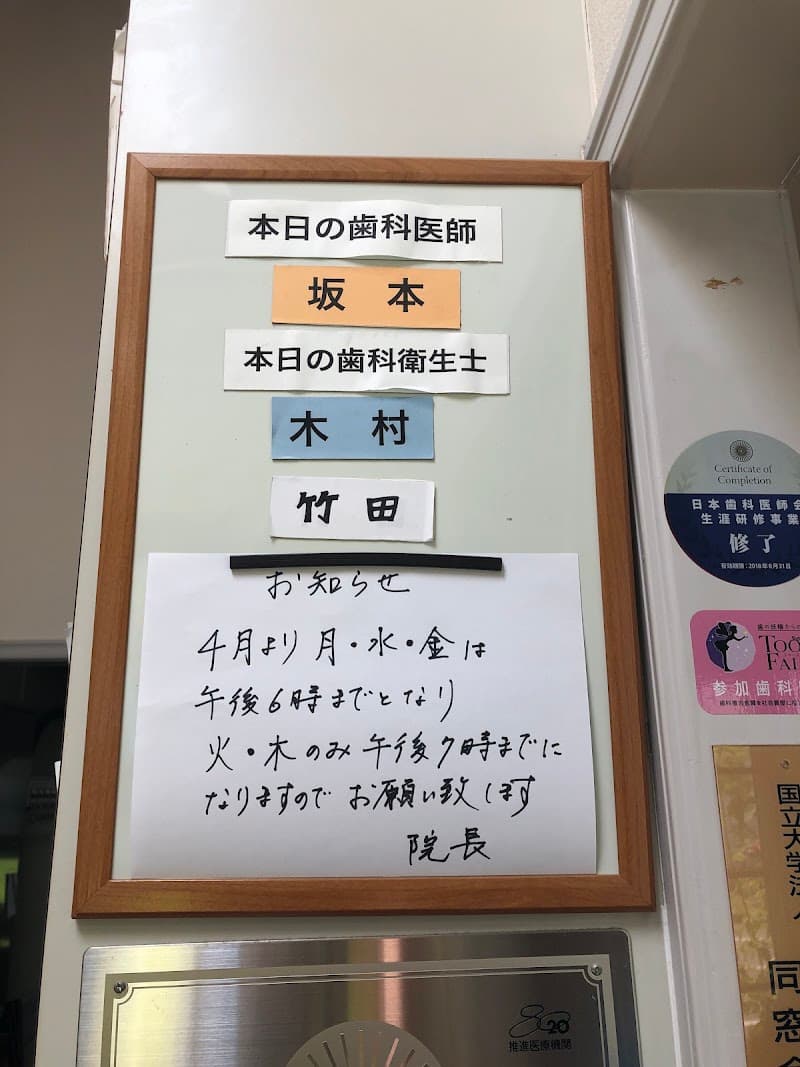 本日の歯科医師
坂 本
本日の歯科衛生士
木 村
竹 田
お知らせ
4月より 月・水・金は
午後6時までとなり
火・木のみ午後7時までに
なりますので お願い致します
院長
Certificate of
Completion
日本歯科医師会
生涯研修事業
修了
有効期限:2018年6月31日
参加歯科
8020
推進医療機関
国立大学法人
同窓会